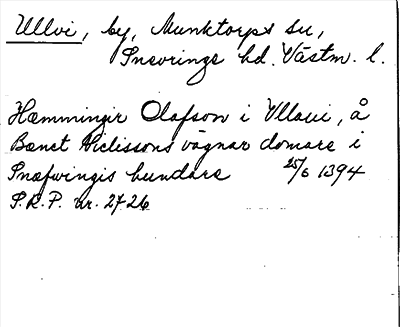 Ullvi, by, Munktorps sn,
Snevringe hd. Västm. l.
Hæmmingir Olafson i Vllaui, å
Bænct Niclissons vägnar domare i
Snæfwingis hundare 25/6 1394
S.R.P. nr. 2726